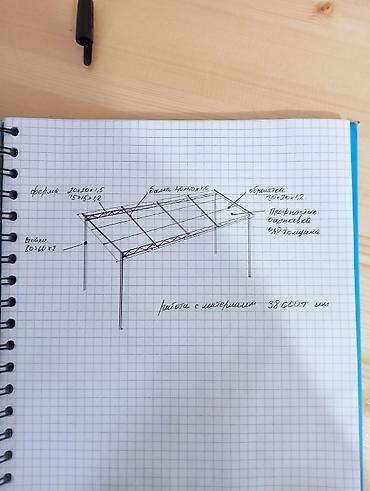 ферма 20×20×1,5
15×15×1,2
балка 40×40×1,5
обрешетка
30×20×1,2
Профнастил
0,40 толщина
60×60×2
работа с материалом 38000т